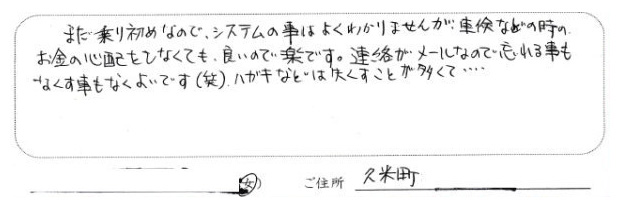 まだ乗り初めなので、システムの事はよくわかりませんが、車検などの時の
お金の心配をしなくても、良いので楽です。連絡がメールなので忘れる事も
なくす事もなくよいです(笑)、ハガキなどは失くすことが多くて····
女) ご住所 久米町